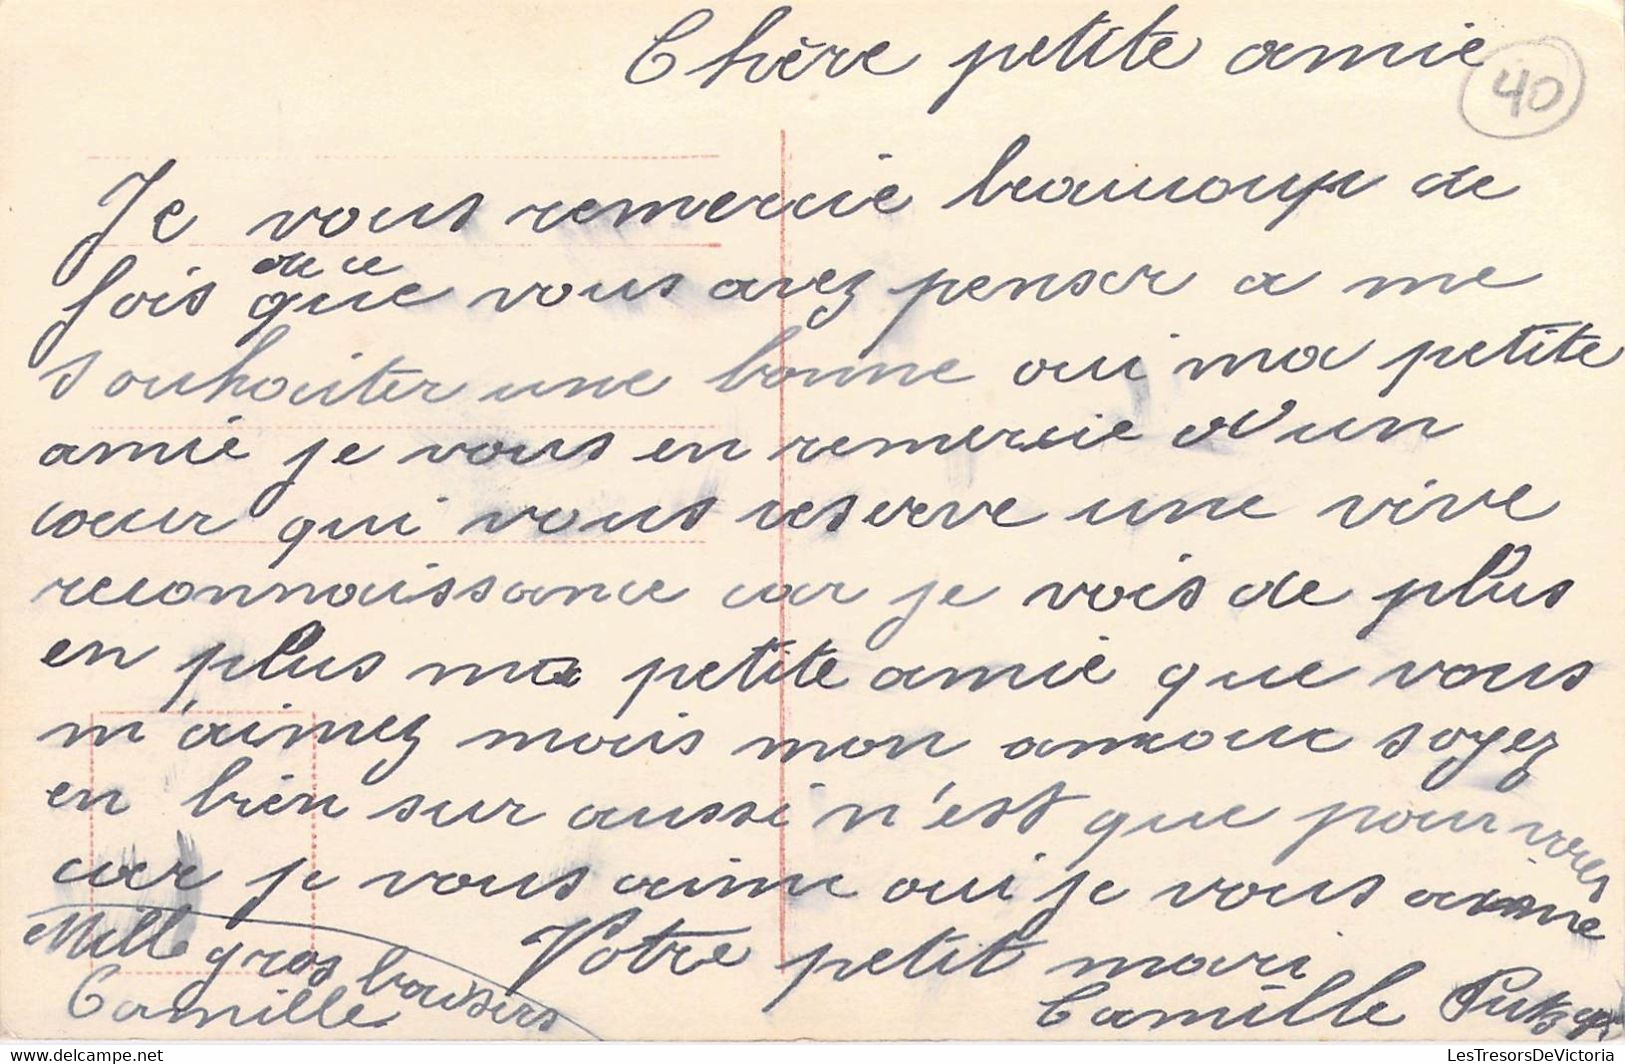 Chère petite amie
40
Je vous remercie beaucoup de
fois de ce que vous avez penser a me
souhaiter une bonne oui ma petite
amie je vous en remercie d'un
cœur qui vous reserve une vive
reconnaissance car je vois de plus
en plus ma petite amie que vous
m'aimez mais mon amour soyez
en bien sur aussi n'est que pour vous
car je vous aime oui je vous aime
Mille gros baisers
Camille
Votre petit mari
Camille
LesTresorsDeVictoria
www.delcampe.net